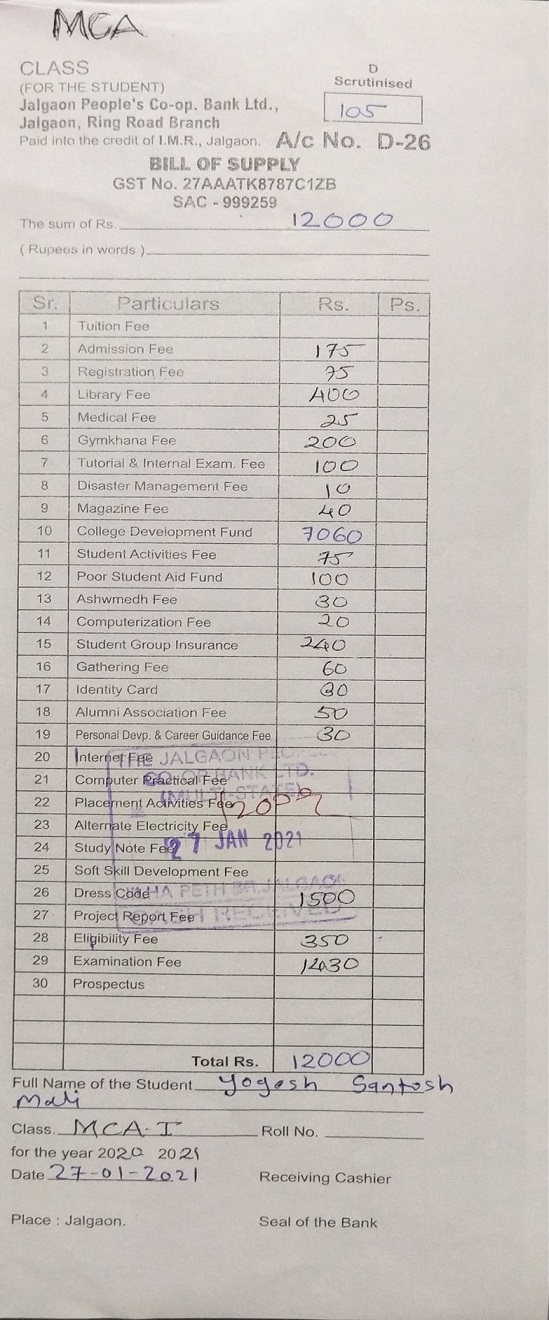 MCA
CLASS
(FOR THE STUDENT)
D
Scrutinised
105
Jalgaon People's Co-op. Bank Ltd.,
Jalgaon, Ring Road Branch
Paid into the credit of I.M.R., Jalgaon. A/c No. D-26
BILL OF SUPPLY
GST No. 27AAATK8787C1ZB
SAC - 999259
The sum of Rs. 12000
( Rupees in words )
Sr. Particulars Rs. Ps.
1 Tuition Fee
2 Admission Fee 175
3 Registration Fee 75
4 Library Fee 400
5 Medical Fee 25
6 Gymkhana Fee 200
7 Tutorial & Internal Exam. Fee 100
8 Disaster Management Fee 10
9 Magazine Fee 40
10 College Development Fund 7060
11 Student Activities Fee 75
12 Poor Student Aid Fund 100
13 Ashwmedh Fee 30
14 Computerization Fee 20
15 Student Group Insurance 240
16 Gathering Fee 60
17 Identity Card 30
18 Alumni Association Fee 50
19 Personal Devp. & Career Guidance Fee 30
20 Internet Fee
THE JALGAON
21 Computer Practical Fee
CO-OP BANK LTD.
(MULTI-STATE)
22 Placement Activities Fee
23 Alternate Electricity Fee
24 Study Note Fee
27 JAN 2021
25 Soft Skill Development Fee
26 Dress Code 1500
PETH BR. JALGAON
27 Project Report Fee
RECEIVED
28 Eligibility Fee 350
29 Examination Fee
30 Prospectus
Total Rs. 12000
Full Name of the Student Yogesh Santosh
Mali
Class. MCA-I Roll No.
for the year 2020 2021
Date 27-01-2021 Receiving Cashier
Place : Jalgaon. Seal of the Bank